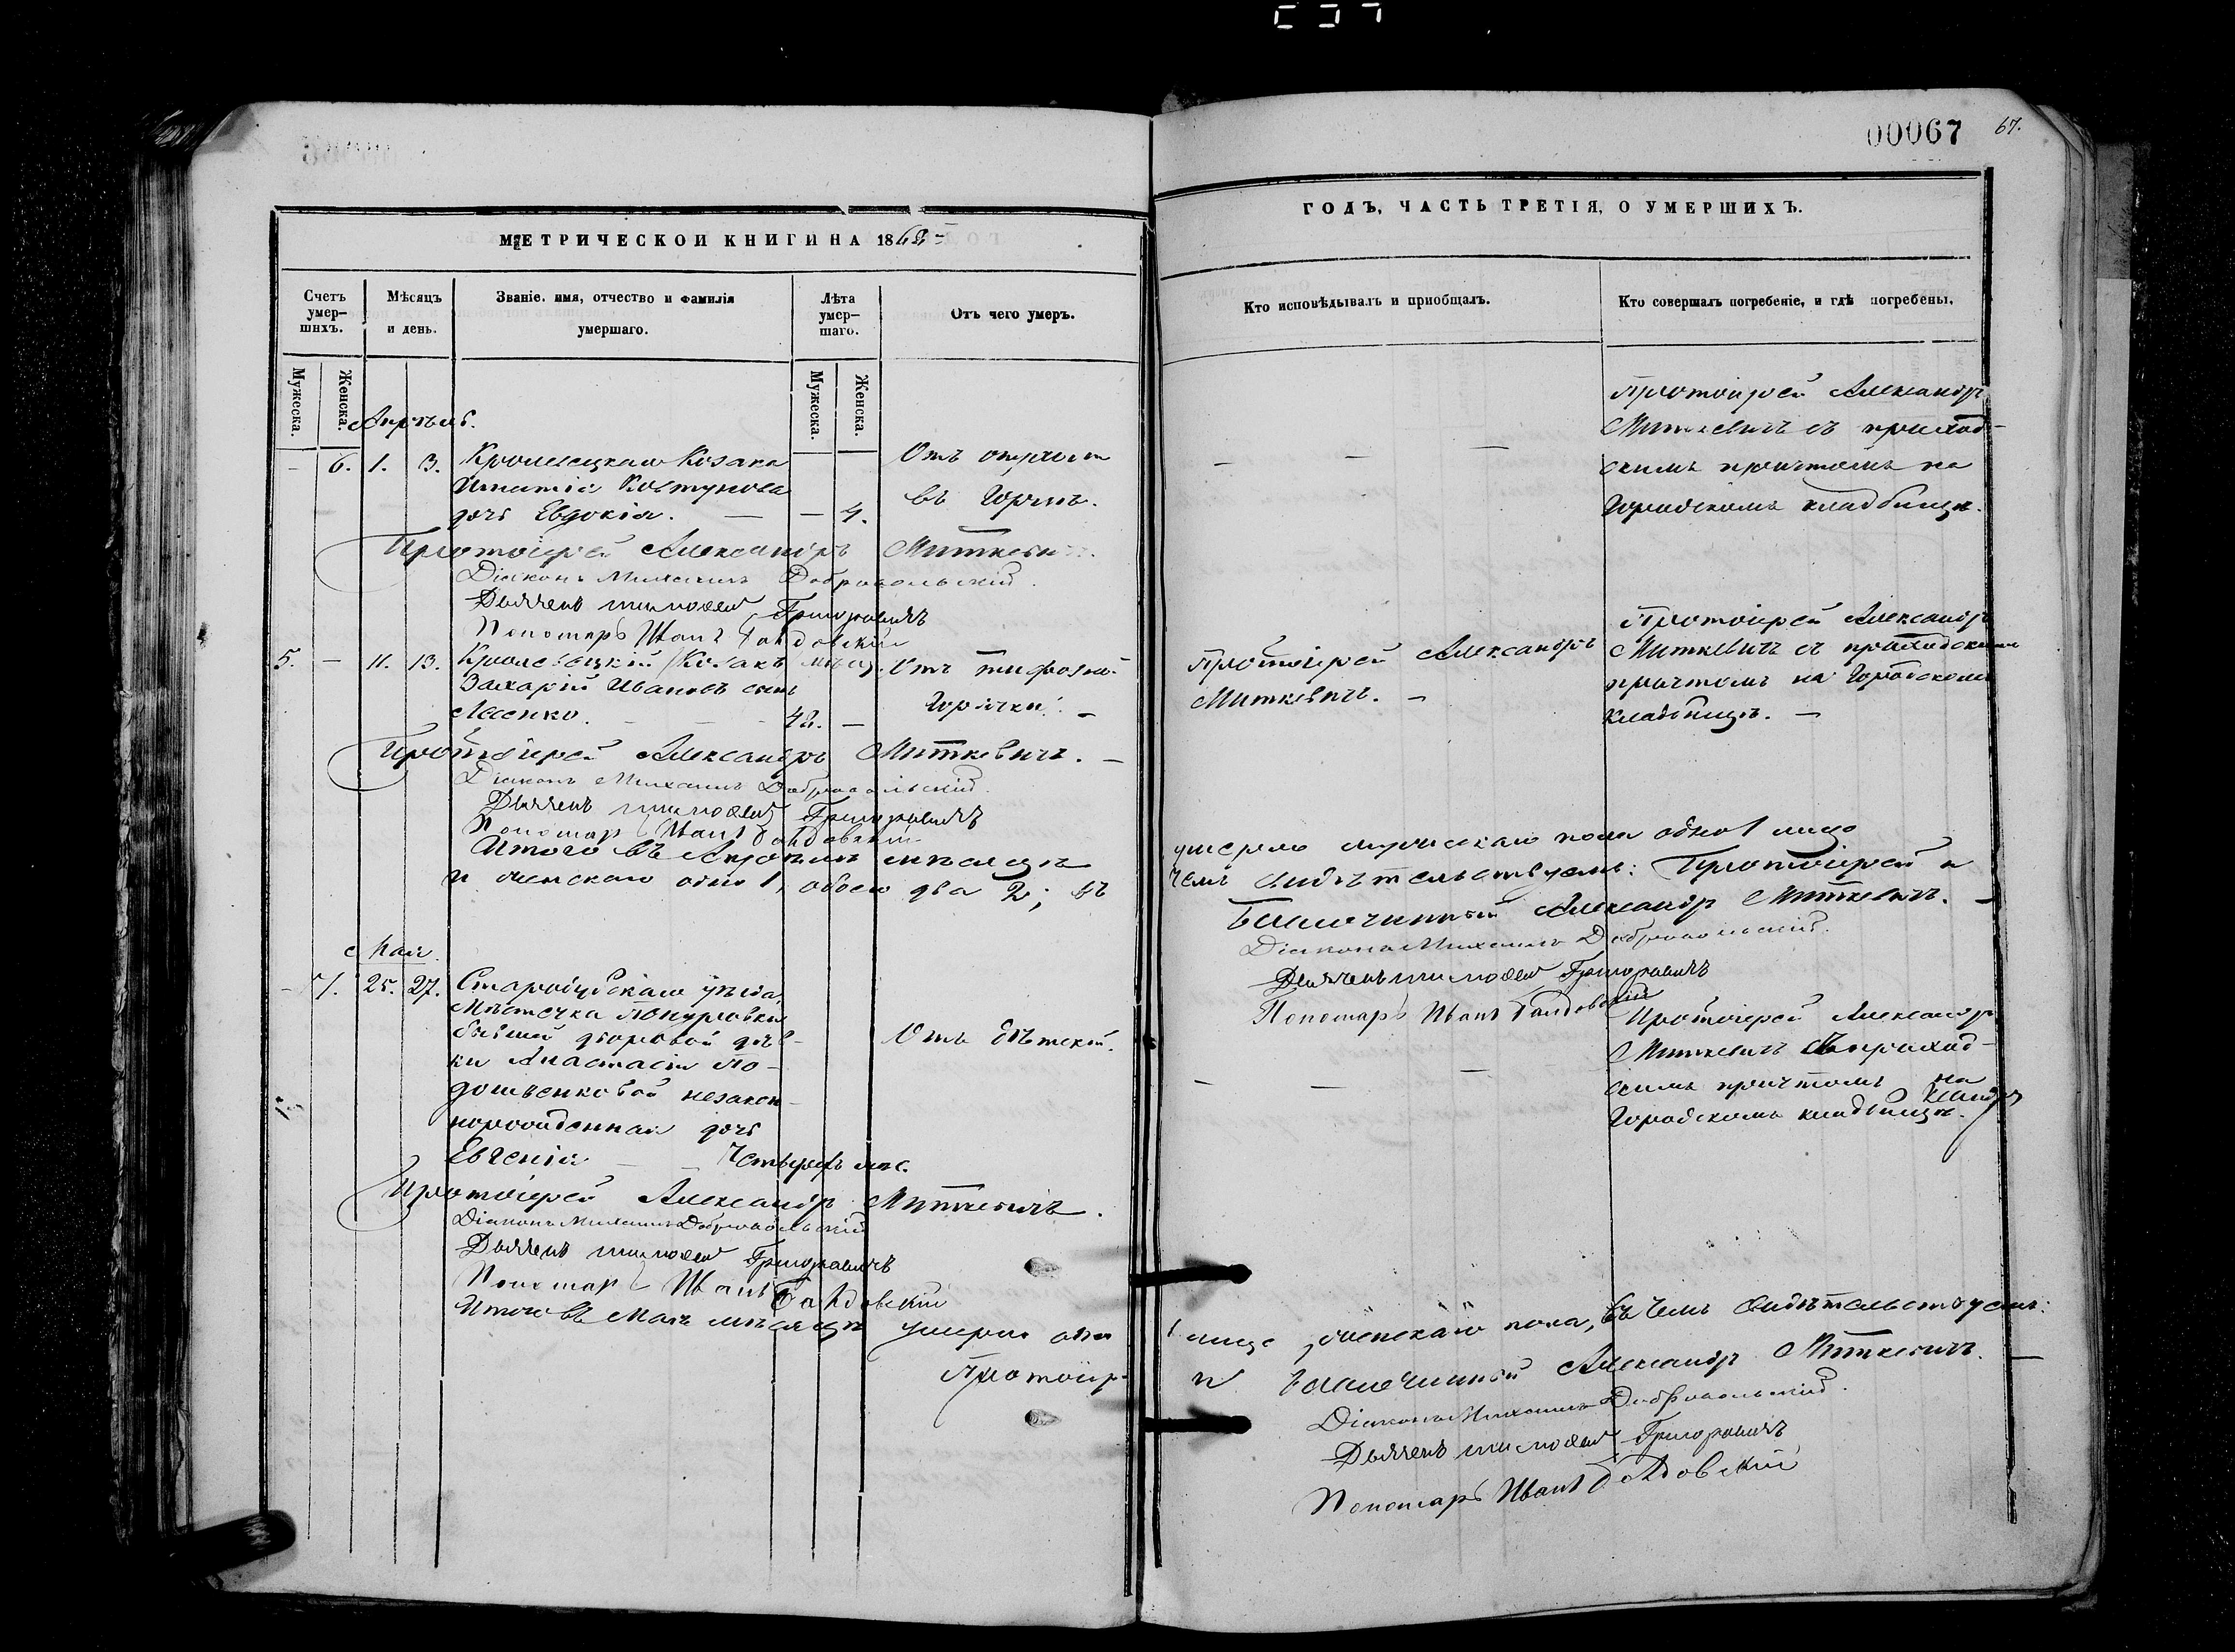 00067 67.
МЕТРИЧЕСКОЙ КНИГИ НА 1868
Счетъ умершихъ.
Мѣсяцъ и день.
Званіе, имя, отчество и фамилія умершаго.
Лѣта умершаго.
Отъ чего умеръ.
Мужеска.
Женска.
Мужеска.
Женска.
Апрѣль.
— 6. 1. 3. Кролевецкаго Козака
Игнатія Ковтунова
дочь Евдокія. — — 4.
Отъ
въ Горлѣ.
Протоіерей Александръ Миткевичъ.
Діаконъ Михаилъ Добровольскій.
Дьячекъ Тимоѳей Григоровичъ
Пономарь Иванъ Гандовскій
5. — 11. 13. Кролевецкій Козакъ
Захарій Ивановъ сынъ
Лесенко. — — 48. —
Отъ тифозной
Горячки. —
Протоіерей Александръ Миткевичъ. —
Діаконъ Михаилъ Добровольскій.
Дьячекъ Тимоѳей Григоровичъ
Пономарь Иванъ Гандовскій
Итого въ Апрѣлѣ мѣсяцѣ
и женскаго одно 1, обоего два 2; въ
Май.
— 7. 25. 27. Стародубскаго уѣзда,
Мѣстечка Понуровки
бывшей дворовой дѣв-
ки Анастасіи По-
дошвенковой незакон-
норожденная дочь
Евгенія — — Четырехъ мѣс.
Отъ дѣтской.
Протоіерей Александръ Миткевичъ.
Діаконъ Михаилъ Добровольскій
Дьячекъ Тимоѳей Григоровичъ
Пономарь Иванъ Гандовскій
Итого въ Маѣ мѣсяцѣ умерло одно
Протоіер-
ГОДЪ, ЧАСТЬ ТРЕТІЯ, О УМЕРШИХЪ.
Кто исповѣдывалъ и пріобщалъ.
Кто совершалъ погребеніе, и гдѣ погребены.
— — —
Протоіерей Александръ
Миткевичъ съ приход-
скимъ причтомъ на
Городскомъ кладбищѣ.
Протоіерей Александръ
Миткевичъ. —
Протоіерей Александръ
Миткевичъ съ приходскимъ
причтомъ на Городскомъ
кладбищѣ. —
умерло мужескаго пола одно 1 лицо
чемъ свидѣтельствуемъ: Протоіерей и
Благочинный Александръ Миткевичъ. —
Діаконъ Михаилъ Добровольскій.
Дьячекъ Тимоѳей Григоровичъ
Пономарь Иванъ Гандовскій
— — —
Протоіерей Александръ
Миткевичъ съ приход-
скимъ причтомъ на
Городскомъ кладбищѣ.
1 лице женскаго пола, въ чемъ свидѣтельствуемъ:
и Благочинный Александръ Миткевичъ. —
Діаконъ Михаилъ Добровольскій.
Дьячекъ Тимоѳей Григоровичъ
Пономарь Иванъ Гандовскій